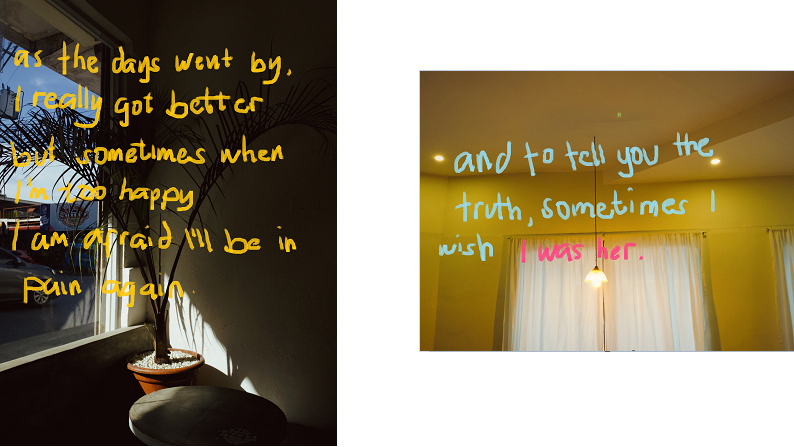 as the days went by,
I really got better
but sometimes when
I'm too happy
I am afraid I'll be in
pain again.
and to tell you the
truth, sometimes I
wish I was her.